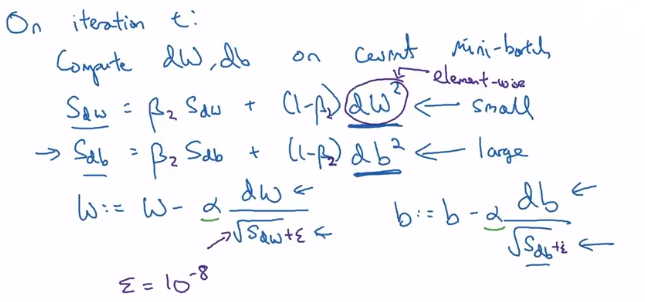 On iteration t:
Compute dW, db on current mini-batch
element-wise
S_dw = β₂ S_dw + (1-β₂) dW² ← small
→ S_db = β₂ S_db + (1-β₂) db² ← large
W := W - α dW / √S_dw + ε ←
b := b - α db / √S_db + ε ←
ε = 10⁻⁸